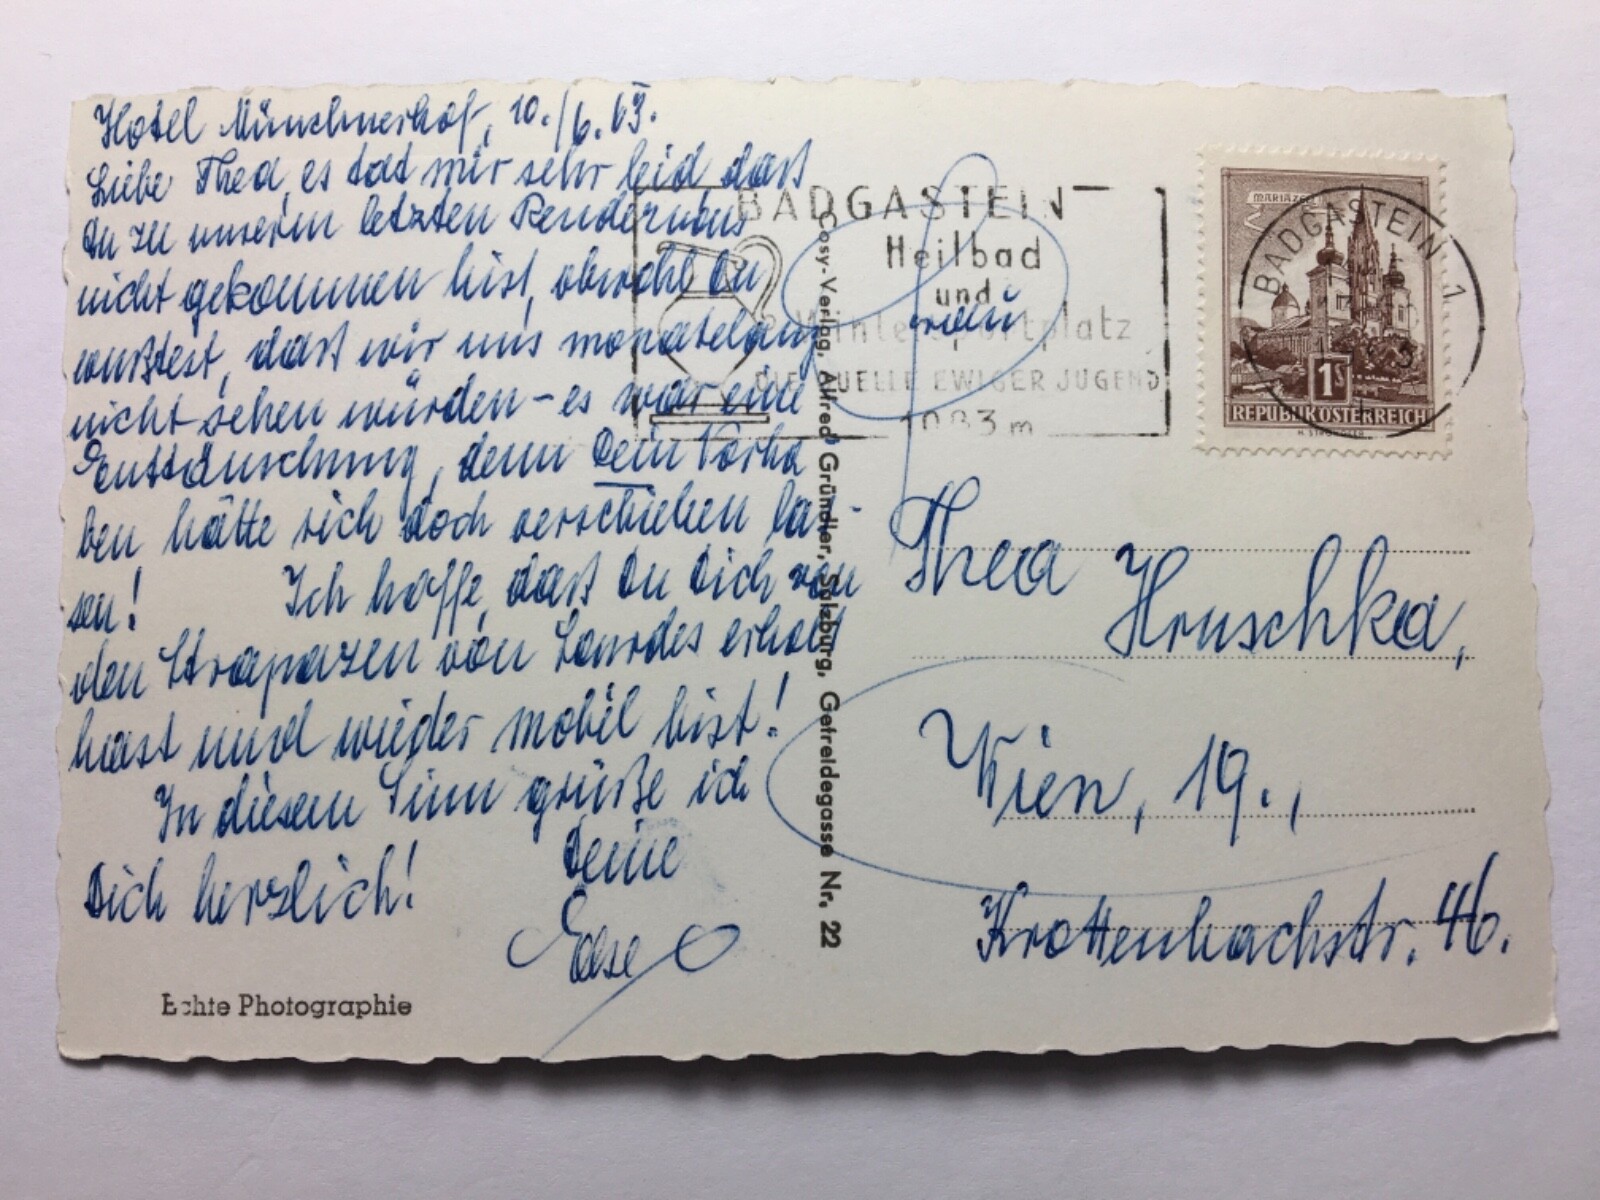 Hotel Münchnerhof, 10./6.63.
Liebe Thea, es tat mir sehr leid daß
Du zu unserem letzten Rendezvous
nicht gekommen bist, obwohl Du
wußtest, daß wir uns monatelang
nicht sehen würden - es war eine
Enttäuschung, denn Dein Vorha
ben hätte sich doch verschieben las-
sen! Ich hoffe, daß Du Dich von
den Strapazen von Lourdes erholt
hast und wieder mobil bist!
In diesem Sinn grüße ich
Dich herzlich! Deine
Echte Photographie
Cosy-Verlag, Alfred Gründler, Salzburg, Getreidegasse Nr. 22
BADGASTEIN
Heilbad
und
Wintersportplatz
DIE QUELLE EWIGER JUGEND
1083 m
Frau
MARIAZELL
1S
REPUBLIK ÖSTERREICH
BADGASTEIN 1
Thea
Hruschka,
Wien, 19.,
Krottenbachstr. 46.